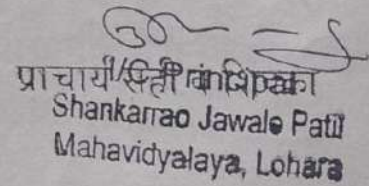 प्राचार्य
Shankarrao Jawale Patil
Mahavidyalaya, Lohara